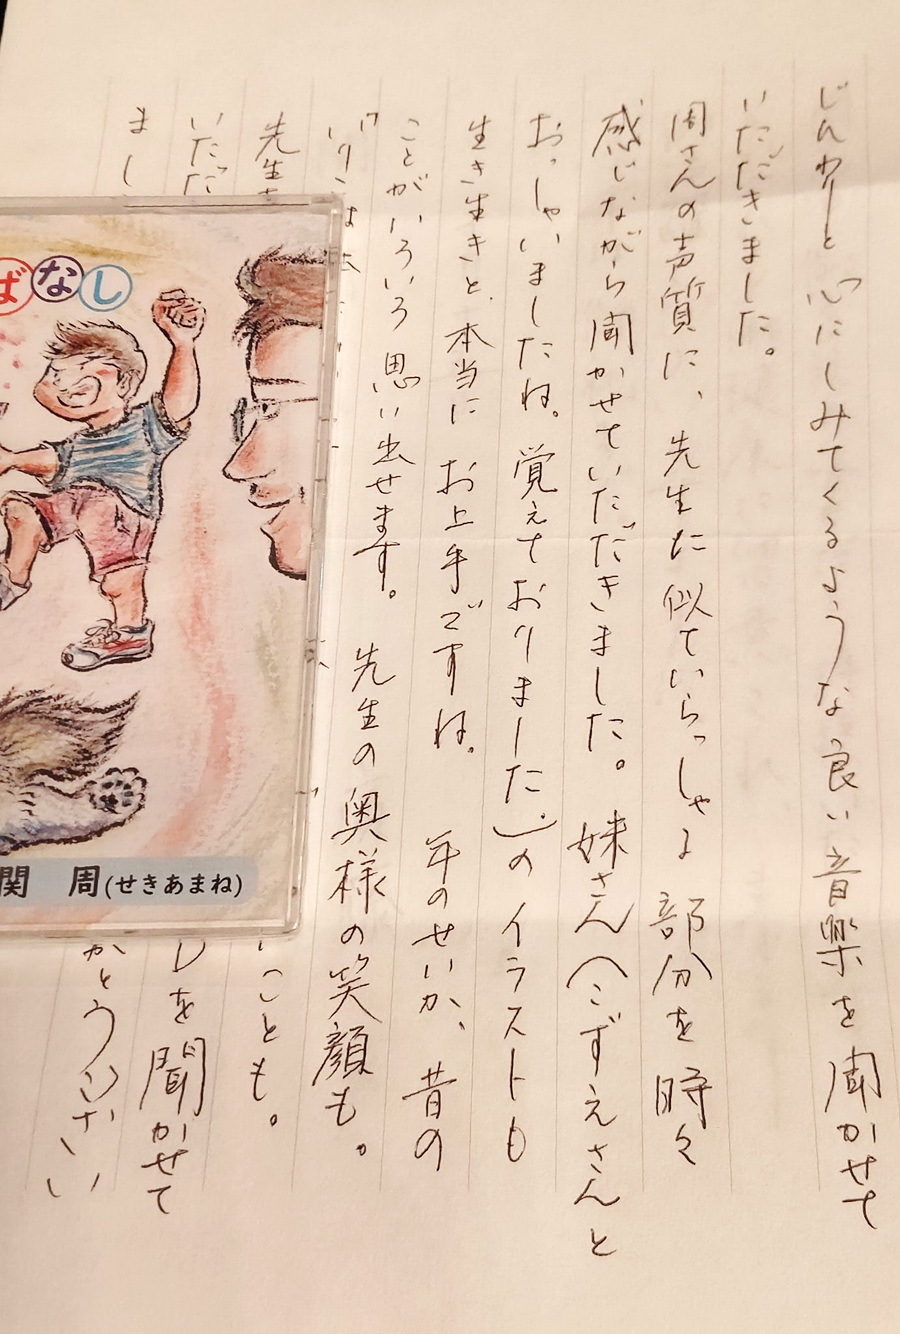 じんわりと心にしみてくるような良い音楽を聞かせて
いただきました。
周さんの声質に、先生に似ていらっしゃる部分を時々
感じながら聞かせていただきました。妹さん(こずえさんと
おっしゃいましたね。覚えておりました。)のイラストも
生き生きと、本当にお上手ですね。年のせいか、昔の
ことがいろいろ思い出せます。先生の奥様の笑顔も。
先生
ことも。
いただ
を聞かせて
まし
とうござい
ばなし
関 周(せきあまね)